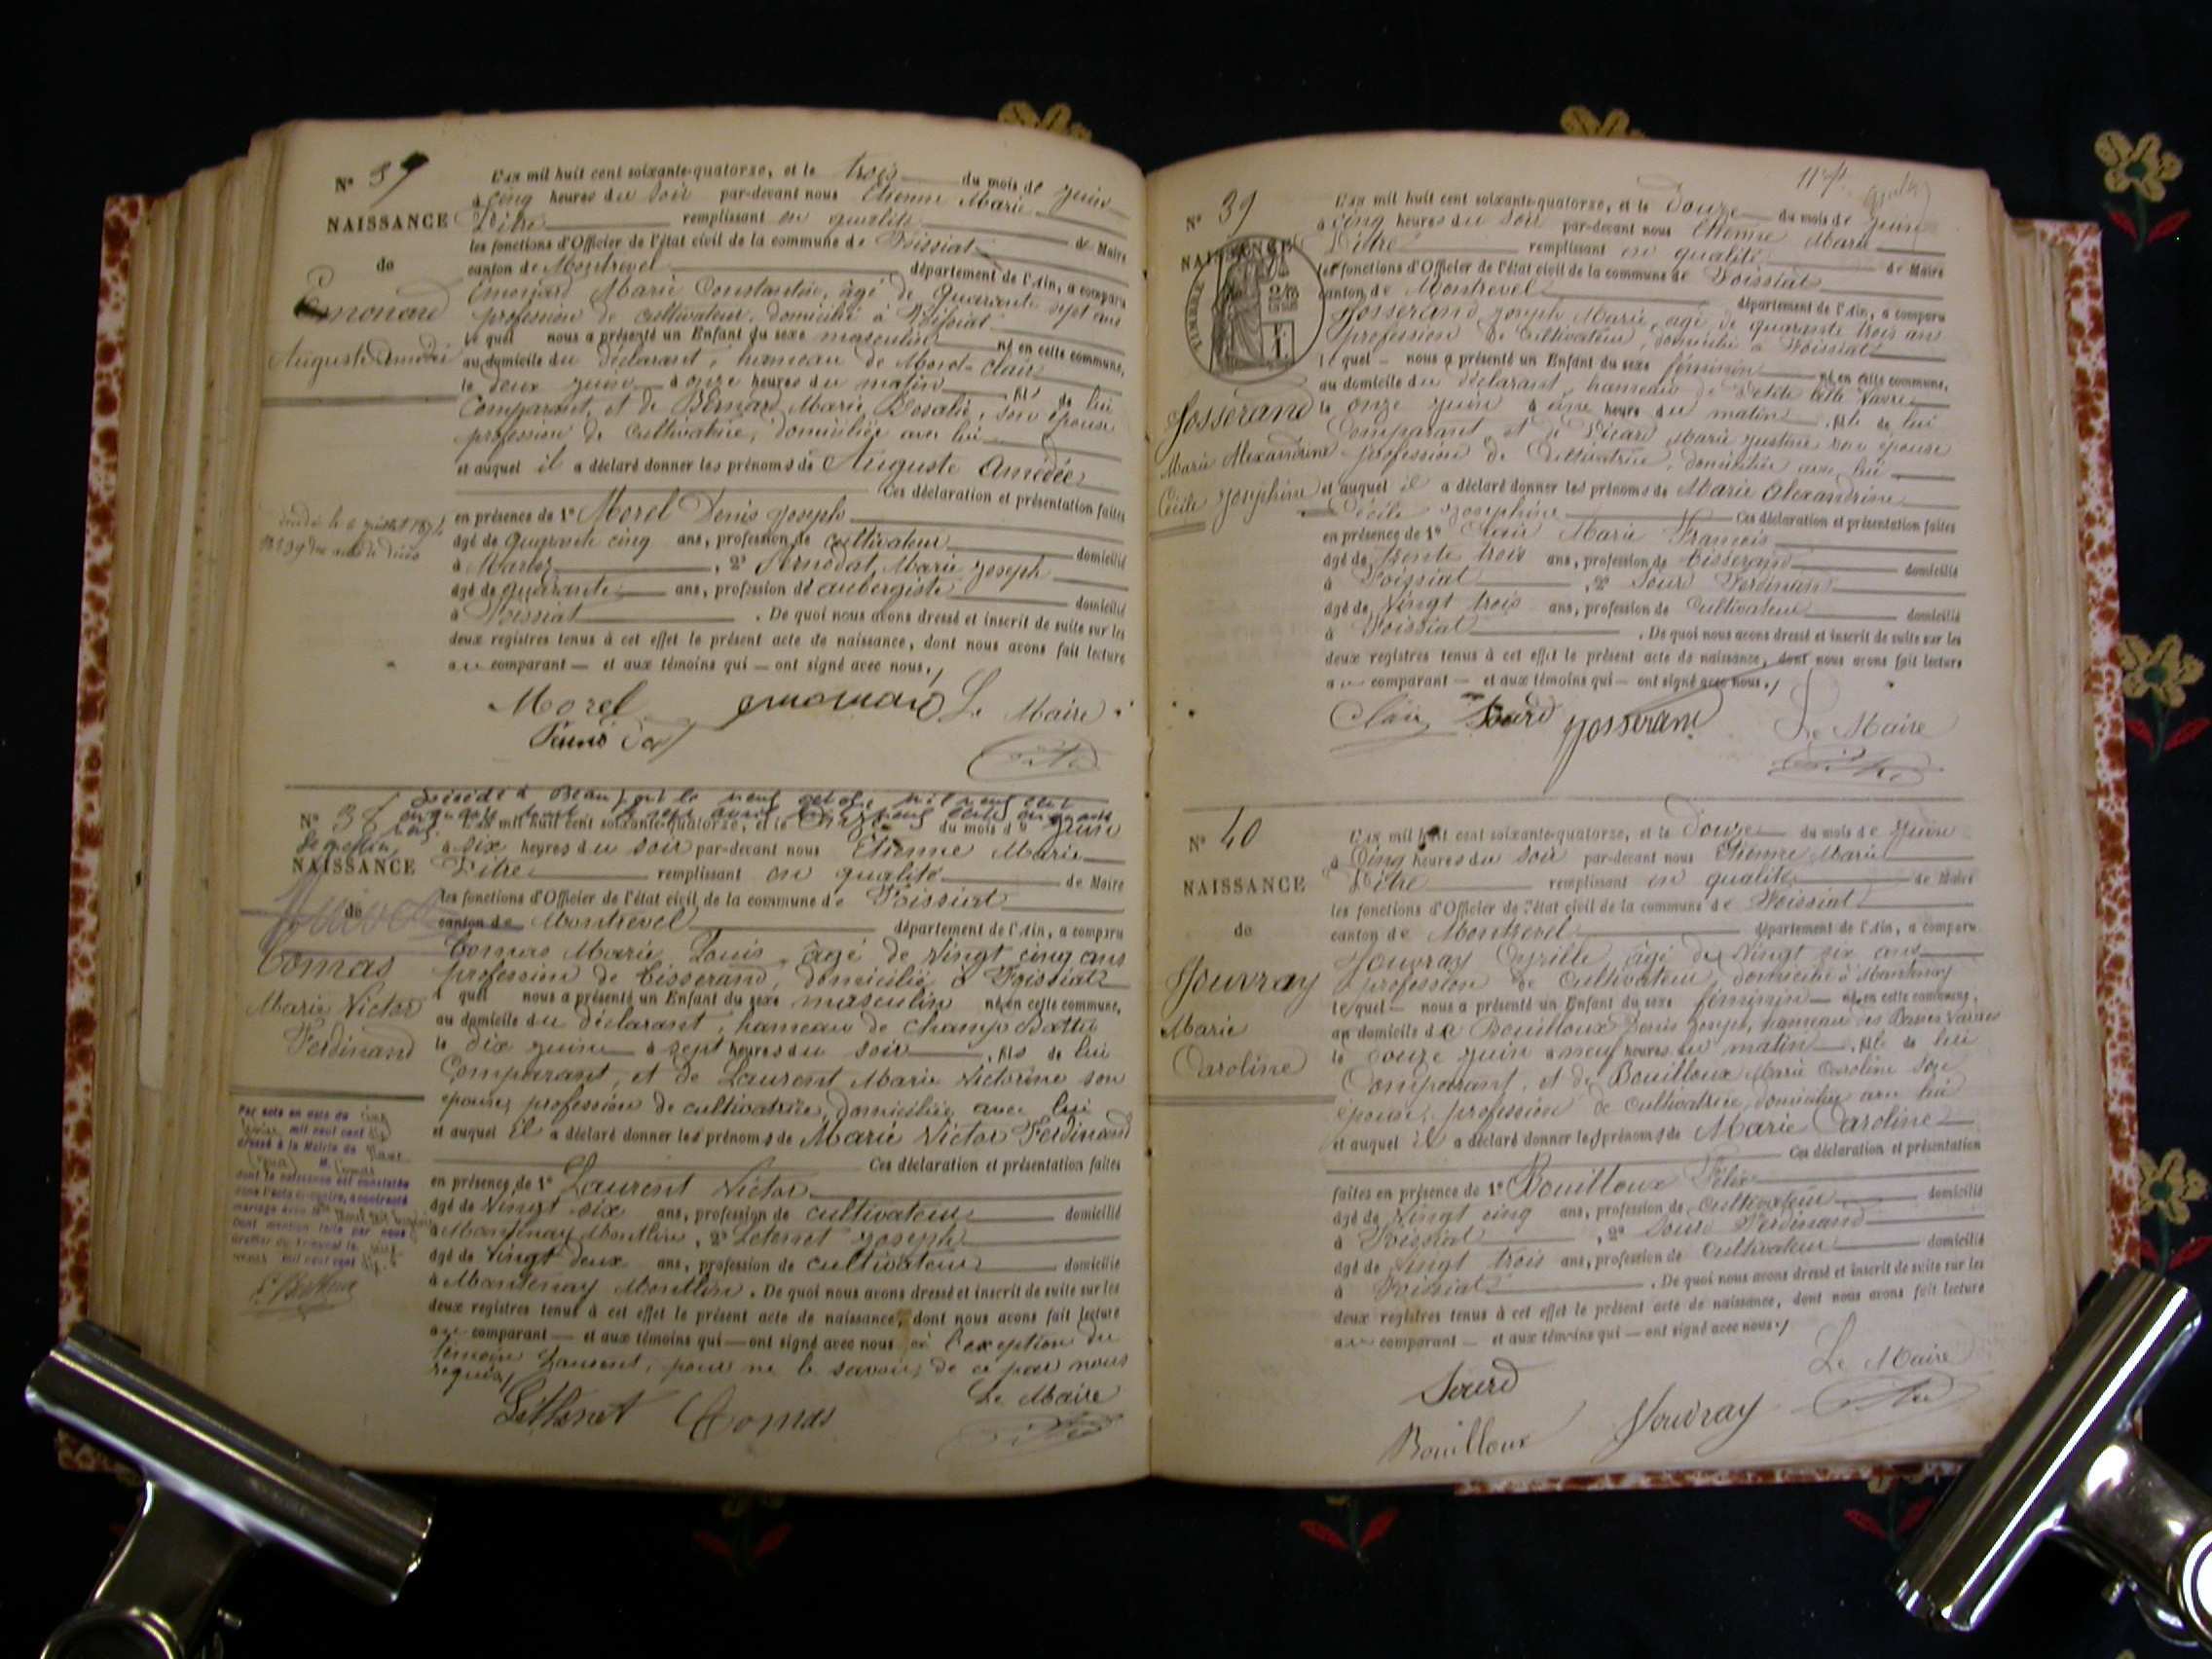 N° 37
NAISSANCE
de
Emonard
Auguste Amédée
décédé le 6 juillet 1874
L'an mil huit cent soixante-quatorze, et le trois du mois de juin
à cinq heures du soir par-devant nous Etienne Marie
Pitre remplissant en qualité de Maire
les fonctions d'Officier de l'état civil de la commune de Foissiat
canton de Montrevel département de l'Ain, a comparu
Emonard Marie Constantin, âgé de quarante sept ans
profession de cultivateur, domicilié à Foissiat
lequel nous a présenté un Enfant du sexe masculin né en cette commune,
au domicile du déclarant, hameau de Mont-clair
le deux juin à onze heures du matin, fils de lui
Comparant, et de Bernard Marie Rosalie, son épouse
profession de cultivatrice, domiciliée avec lui
et auquel il a déclaré donner les prénoms de Auguste Amédée
Ces déclaration et présentation faites
en présence de 1° Morel Denis Joseph
âgé de quarante cinq ans, profession de cultivateur domicilié
à Marboz, 2° Pernodat, Marie Joseph
âgé de quarante ans, profession de aubergiste domicilié
à Foissiat. De quoi nous avons dressé et inscrit de suite sur les
deux registres tenus à cet effet le présent acte de naissance, dont nous avons fait lecture
au comparant et aux témoins qui ont signé avec nous.
Morel Emonard Le Maire
Pernodat Pitre
Décédé à Beaupont le neuf octobre mil neuf cent
N° 38
NAISSANCE
de
Comas
Marie Victor
Ferdinand
Par acte en date du cinq
mil neuf cent dix
dressé à la Mairie de
M. Comas
dont la naissance est constatée
dans l'acte ci-contre, a contracté
mariage avec Mlle
Dont mention faite par nous
Greffier du tribunal le
mil neuf cent dix
L'an mil huit cent soixante-quatorze, et le onze du mois de juin
à six heures du soir par-devant nous Etienne Marie
Pitre remplissant en qualité de Maire
les fonctions d'Officier de l'état civil de la commune de Foissiat
canton de Montrevel département de l'Ain, a comparu
Comas Marie Louis âgé de vingt cinq ans
profession de tisserand, domicilié à Foissiat
lequel nous a présenté un Enfant du sexe masculin né en cette commune,
au domicile du déclarant, hameau de Champ Battu
le dix juin à sept heures du soir, fils de lui
Comparant, et de Laurent Marie Victorine son
épouse, profession de cultivatrice, domiciliée avec lui
et auquel il a déclaré donner les prénoms de Marie Victor Ferdinand
Ces déclaration et présentation faites
en présence de 1° Laurent Victor
âgé de vingt six ans, profession de cultivateur domicilié
à Mantenay Montlin, 2° Lethenet Joseph
âgé de vingt deux ans, profession de cultivateur domicilié
à Mantenay Montlin. De quoi nous avons dressé et inscrit de suite sur les
deux registres tenus à cet effet le présent acte de naissance, dont nous avons fait lecture
au comparant et aux témoins qui ont signé avec nous à l'exception du
témoin Laurent, pour ne le savoir, de ce par nous
requis,
Lethenet Comas Le Maire
Pitre
N° 39
NAISSANCE
TIMBRE
Josserand
Marie Alexandrine
Cécile Joséphine
L'an mil huit cent soixante-quatorze, et le douze du mois de juin
à cinq heures du soir par-devant nous Etienne Marie
Pitre remplissant en qualité de Maire
les fonctions d'Officier de l'état civil de la commune de Foissiat
canton de Montrevel département de l'Ain, a comparu
Josserand Joseph Marie, âgé de quarante trois ans
profession de cultivateur, domicilié à Foissiat
lequel nous a présenté un Enfant du sexe féminin né en cette commune,
au domicile du déclarant, hameau de Petite
le onze juin à une heure du matin, fille de lui
Comparant, et de Picard Marie Justine son épouse
profession de cultivatrice, domiciliée avec lui
et auquel il a déclaré donner les prénoms de Marie Alexandrine
Cécile Joséphine Ces déclaration et présentation faites
en présence de 1° Clair Marie François
âgé de trente trois ans, profession de tisserand domicilié
à Foissiat, 2° Sourd Ferdinand
âgé de vingt trois ans, profession de cultivateur domicilié
à Foissiat. De quoi nous avons dressé et inscrit de suite sur les
deux registres tenus à cet effet le présent acte de naissance, dont nous avons fait lecture
au comparant et aux témoins qui ont signé avec nous.
Clair Sourd Josserand Le Maire
Pitre
N° 40
NAISSANCE
de
Jouvray
Marie
Caroline
L'an mil huit cent soixante-quatorze, et le douze du mois de juin
à cinq heures du soir par-devant nous Etienne Marie
Pitre remplissant en qualité de Maire
les fonctions d'Officier de l'état civil de la commune de Foissiat
canton de Montrevel département de l'Ain, a comparu
Jouvray Cyrille âgé de vingt six ans
profession de cultivateur, domicilié à Mantenay
lequel nous a présenté un Enfant du sexe féminin né en cette commune,
au domicile de Bouilloux Denis Joseph, hameau des
le douze juin à neuf heures du matin, fille de lui
Comparant, et de Bouilloux Marie Caroline son
épouse, profession de cultivatrice, domiciliée avec lui
et auquel il a déclaré donner les prénoms de Marie Caroline
Ces déclaration et présentation
faites en présence de 1° Bouilloux Félix
âgé de vingt cinq ans, profession de cultivateur domicilié
à Foissiat, 2° Sourd Ferdinand
âgé de vingt trois ans, profession de cultivateur domicilié
à Foissiat. De quoi nous avons dressé et inscrit de suite sur les
deux registres tenus à cet effet le présent acte de naissance, dont nous avons fait lecture
au comparant et aux témoins qui ont signé avec nous.
Sourd Le Maire
Bouilloux Jouvray Pitre